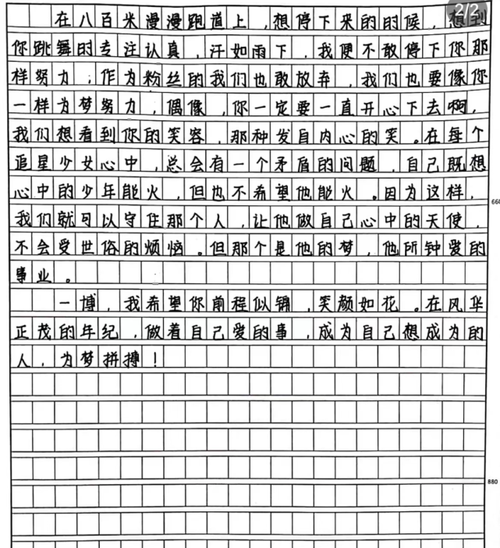 2/2
在八百米漫漫跑道上，想停下来的的时候，想到
你跳舞的专注认真，汗如雨下，我便不敢停下你那
样努力，作为粉丝的我们也敢放弃，我们也要像你
一样为梦努力，偶像，你一定要一直开心下去啊，
我们想看到你的笑容，那种发自内心的笑。在每个
追星少女心中，总会有一个矛盾的问题，自己既想
心中的少年能火，但也不希望他能火。因为这样，
我们就可以守住那个人，让他做自己心中的天使，
不会受世俗的烦恼。但那个是他的梦，他所钟爱的
事业。
一博，我希望你前程似锦，笑颜如花。在风华
正茂的年纪，做着自己爱的事，成为自己想成为的
人，为梦拼搏！
660
880